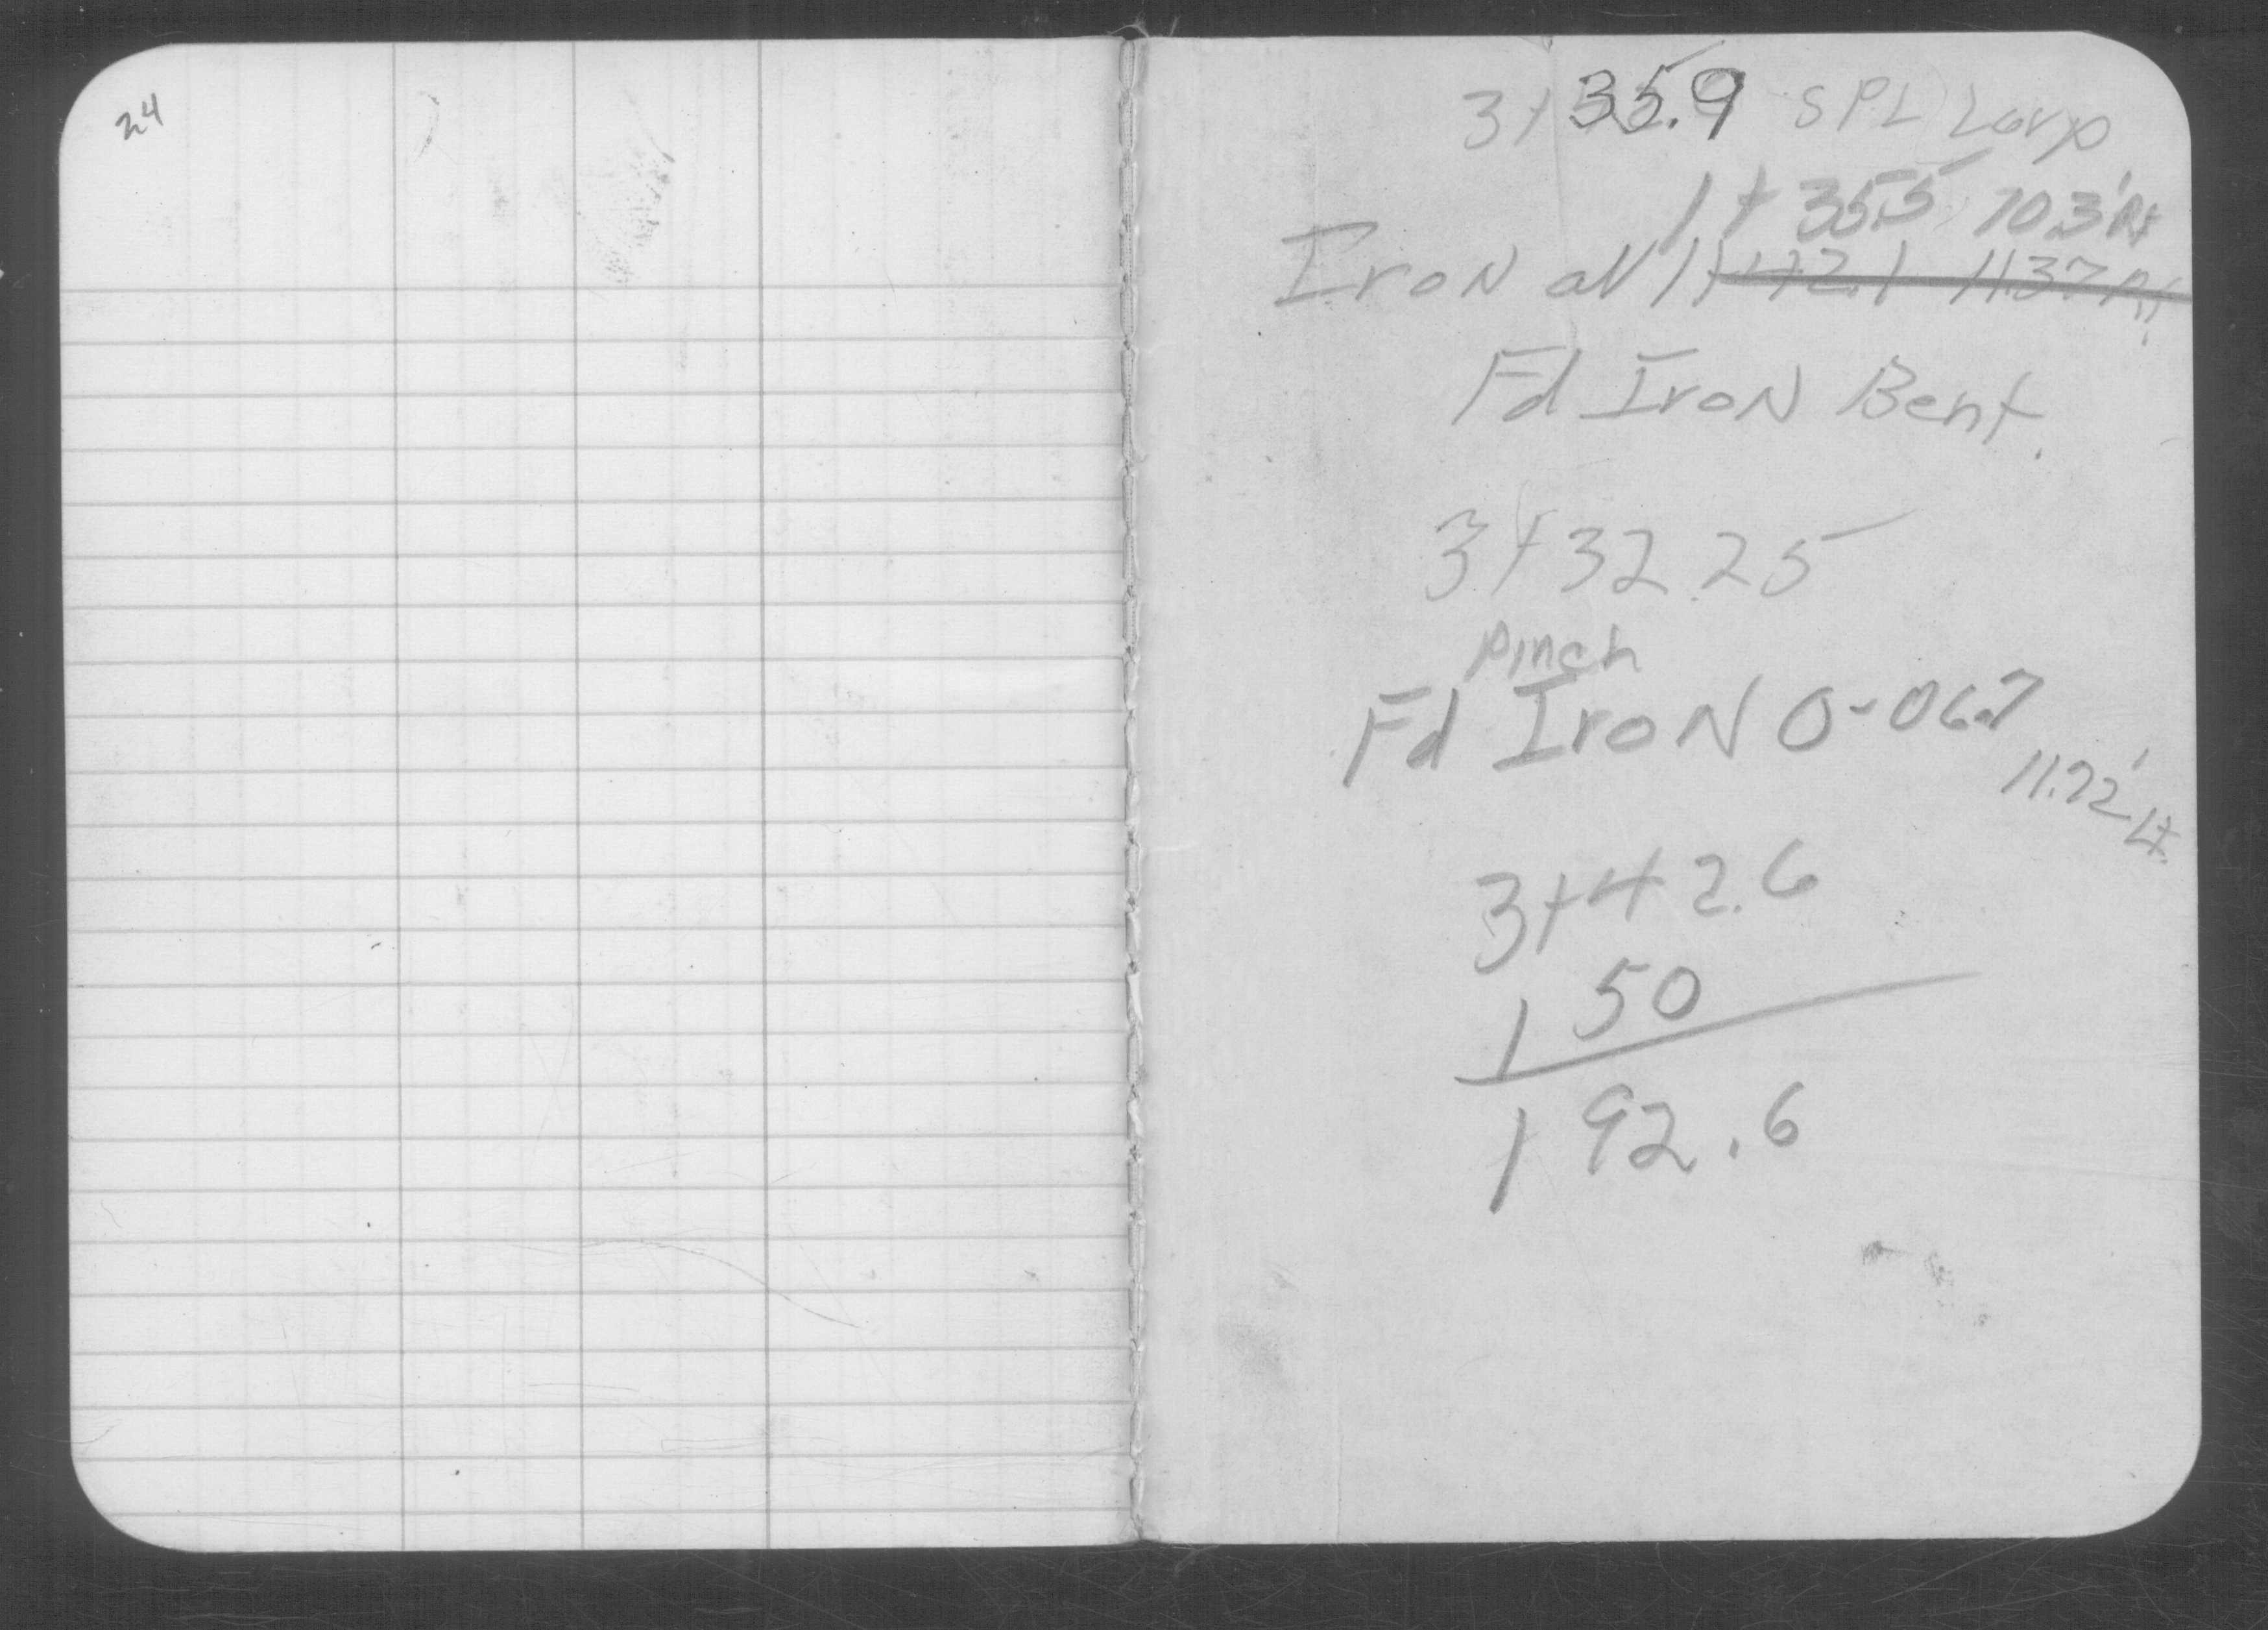 24
3+35.9 SPL Larp
1+35.5 10.3' Rt
Iron oN 1+42.1 11.37 Rt
Fd IroN Bent.
3+32.25
pinch
Fd IroN 0-06.7
11.22' Lt
3+42.6
1 50
1 92.6